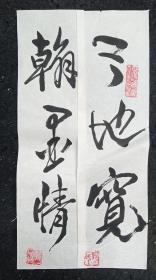 天地宽
翰墨情